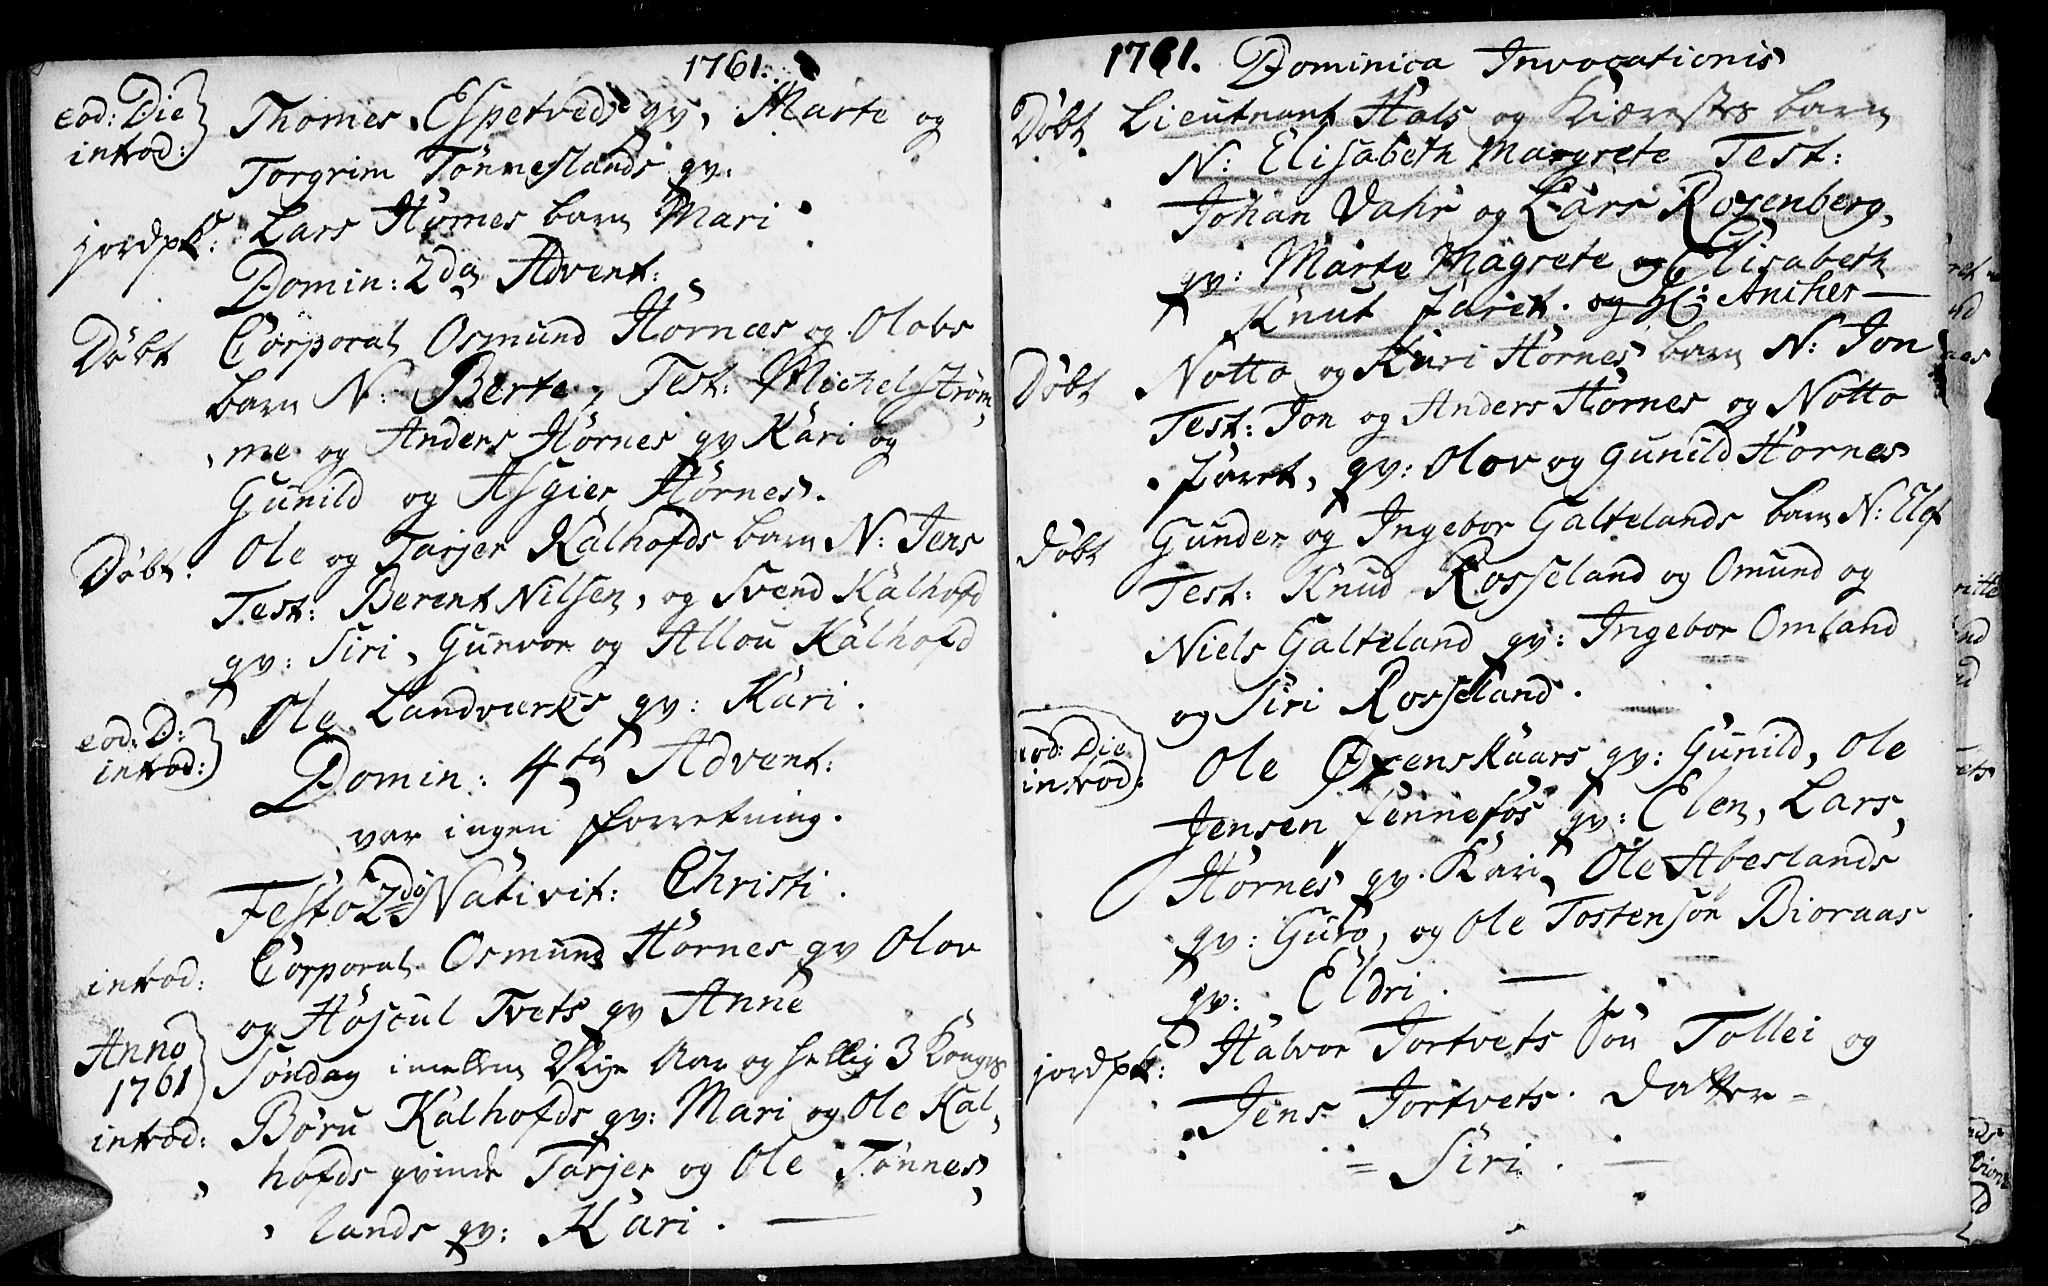 1761.
eod: Die introd: Thomes Espetveds qv, Marte og
Torgrim Tønneslands qv:
jordpk: Lars Hornes barn Mari
Domin: 2da Advent:
Døbt Corporal Osmund Hornæs og Olobs
barn N: Berte, Test: Michel Strøm,
,me og Anders Hornes qv Kari og
Gunild og Asgier Hornes.
Døbt. Ole og Tarjer Kalhofds barn N: Jens
Test: Berent Nilsen, og Svend Kalhofd
qv: Siri, Gunvor og Allou Kalhofd
eod: D: introd: Ole Landværks qv: Kari.
Domin: 4ta Advent:
var ingen forretning.
Festo 2do Nativit: Christi.
introd: Corporal Osmund Hornes qv Olov
og Høscul Tvets qv Anne
Anno 1761 Søndag imellem Nye Aar og hellig 3 Konger
introd: Børu Kalhofds qv: Mari og Ole Kal,
hofds qvinde Tarjer og Ole Tønnes,
,lands qv: Kari.
1761. Dominica Invocationis
Døbt Lieutnant Hals og Kiærestes barn
N: Elisabeth Margrete Test:
Johan Dahr og Lars Rosenberg,
qv: Marte Magrete og Elisabeth
Knut Faret. og Hr: Ancher
Døbt Notto og Kari Hornes barn N: Jon
Test: Jon og Anders Hornes og Notto
Faret, qv: Olov og Gunild Hornes
Døbt Gunder og Ingebor Galtelands barn N: Elef
Test: Knud Rosseland og Omund og
Niels Galteland qv: Ingebor Omland
og Siri Rosseland.
eod: Die introd: Ole Øxenskaars qv: Gunild, Ole
Jensen Fennefos qv: Elen, Lars
Hornes qv. Kari, Ole Abeslands
qv: Guro, og Ole Tostensøn Bioraas
qv: Eldri.
jordpk: Halvor Jortvets Søn Tollei og
Jens Jortvets. Datter =
= Siri.